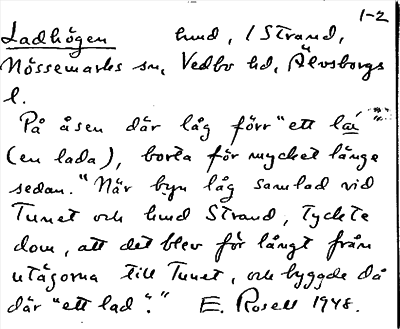 1-2
Ladhögen hmd, i Strand,
Nössemarks sn, Vedbo hd, Älvsborgs
l.
På åsen där låg förr "ett la"
(en lada), borta för mycket länge
sedan. "När byn låg samlad vid
Tunet och hmd Strand, tyckte
dom, att det blev för långt från
utägorna till Tunet, och byggde då
där "ett lad"." E. Rosell 1948.